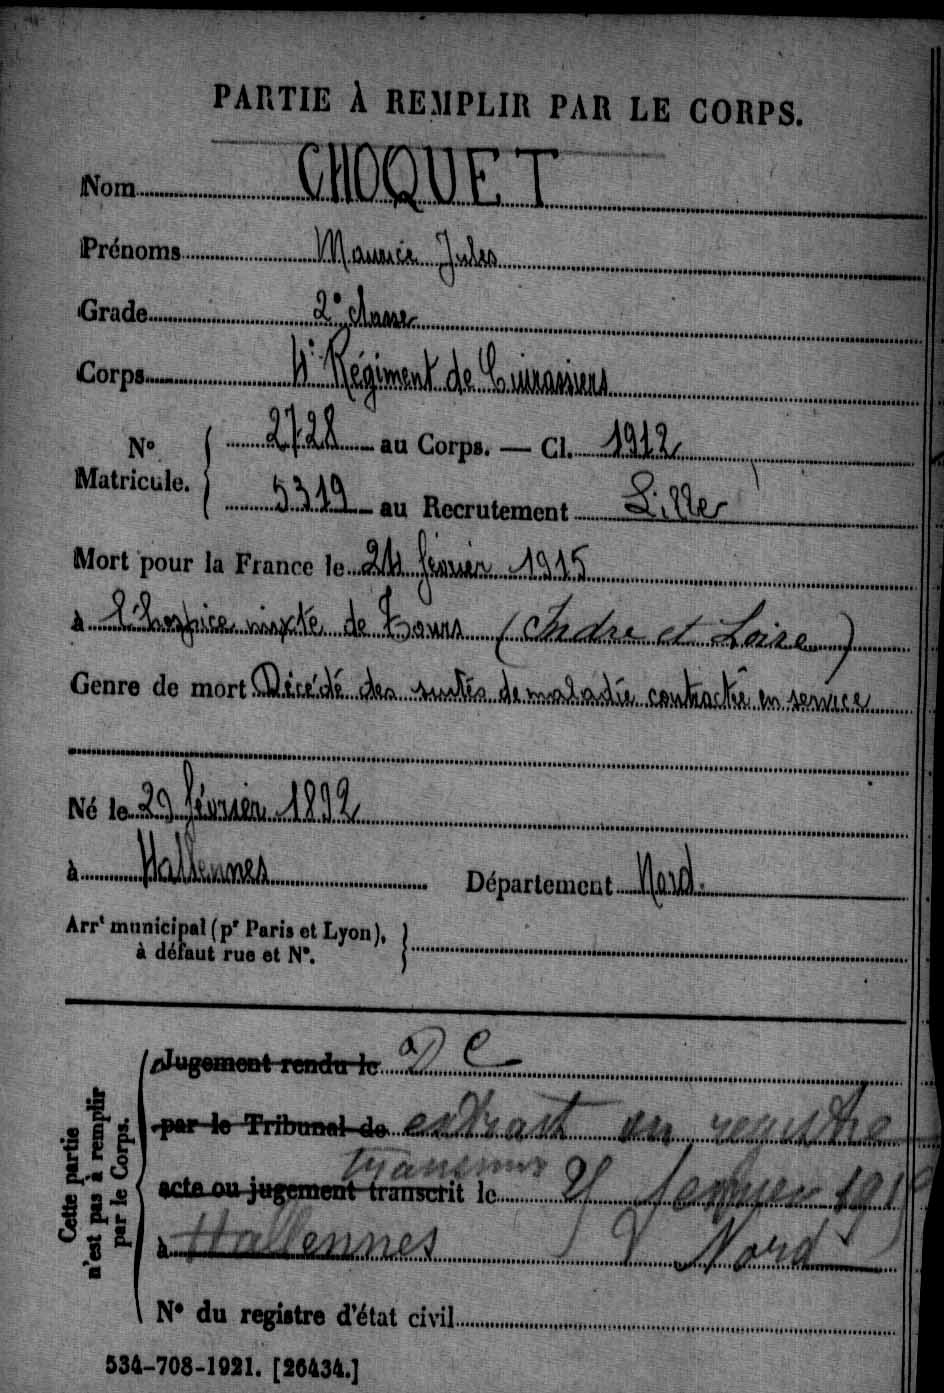 PARTIE À REMPLIR PAR LE CORPS.
Nom CHOQUET
Prénoms Maurice Jules
Grade 2e classe
Corps 4e Régiment de Cuirassiers
N° Matricule. { 2728 au Corps. — Cl. 1912
5319 au Recrutement Lille
Mort pour la France le 24 février 1915
à l'hospice mixte de Tours (Indre et Loire)
Genre de mort Décédé des suites de maladie contractée en service
Né le 29 février 1892
à Hallennes Département Nord.
Arrt municipal (pr Paris et Lyon), à défaut rue et N°. }
Cette partie n'est pas à remplir par le Corps.
Jugement rendu le
par le Tribunal de extrait registre
acte ou jugement transcrit le
à Hallennes Nord
N° du registre d'état civil
534-708-1921. [26434.]